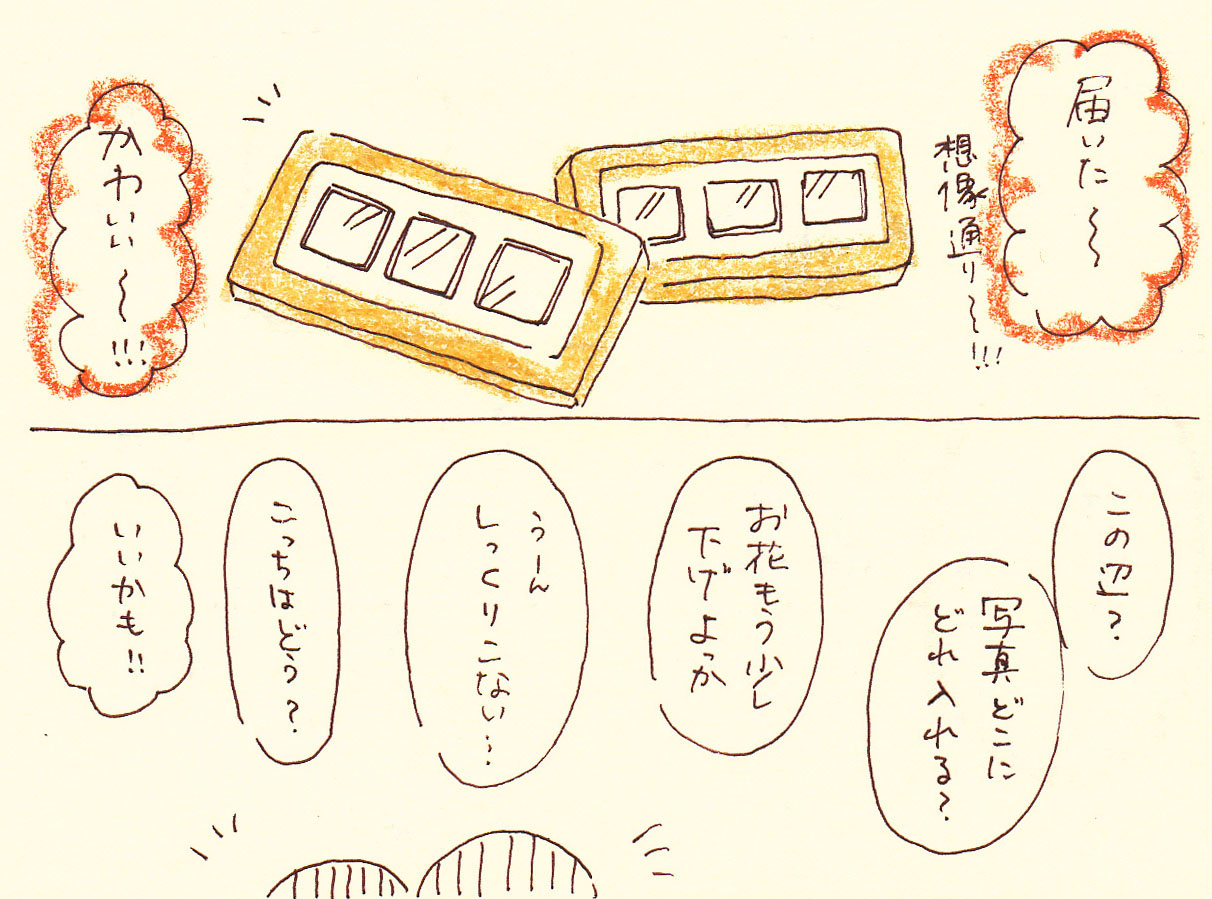 届いた〜〜
想像通り〜〜!!!
かわいい〜〜!!!
この辺?
写真どこに
どれ入れる?
お花もう少し
下げよっか
うーん
しっくりこない〜
こっちはどう?
いいかも!!